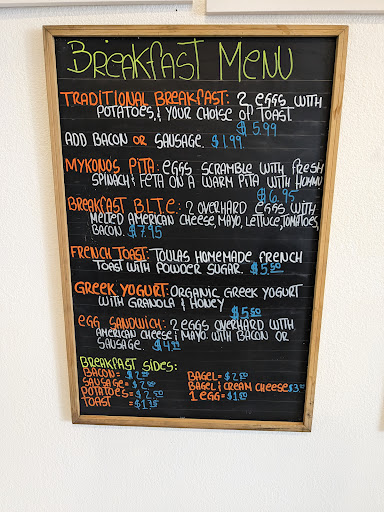 BREAKFAST MENU
TRADITIONAL BREAKFAST: 2 EGGS WITH
POTATOES, & YOUR CHOISE OF TOAST
$5.99
ADD BACON OR SAUSAGE. $1.99
MYKONOS PITA: EGGS SCRAMBLE WITH FRESH
SPINACH & FETA ON A WARM PITA WITH HUMMU
$6.95
BREAKFAST B.L.T.C: 2 OVERHARD EGGS WITH
MELTED AMERICAN CHEESE, MAYO, LETTUCE, TOMATOES,
BACON. $7.95
FRENCH TOAST: TOULAS HOMEMADE FRENCH
TOAST WITH POWDER SUGAR. $5.50
GREEK YOGURT: ORGANIC GREEK YOGURT
WITH GRANOLA & HONEY
$5.50
EGG SANDWICH: 2 EGGS OVERHARD WITH
AMERICAN CHEESE & MAYO WITH BACON OR
SAUSAGE.
BREAKFAST SIDES:
BACOD =
SAUSAGE =
POTATOES = $2.50
TOAST =
BAGEL = $2.50
BAGEL & CREAM CHEESE
1 EGG =